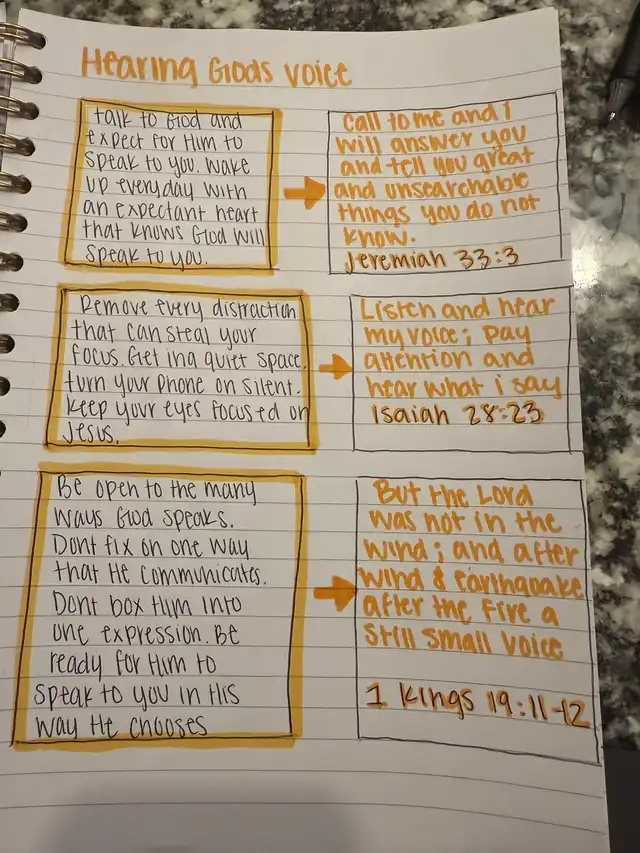 Hearing Gods voice
talk to God and
expect for Him to
speak to you. Wake
up everyday with
an expectant heart
that knows God will
speak to you.
Call to me and i
will answer you
and tell you great
and unsearchable
things you do not
know.
Jeremiah 33:3
Remove every distraction
that can steal your
focus. Get in a quiet space.
turn your phone on silent.
keep your eyes focused on
Jesus.
Listen and hear
my voice; pay
attention and
hear what i say
Isaiah 28:23
Be open to the many
ways God speaks.
Dont fix on one way
that He communicates.
Dont box Him into
one expression. Be
ready for Him to
speak to you in His
way He chooses
But the Lord
was not in the
wind; and after
wind & Earthquake
after the fire a
Still small voice
1 Kings 19:11-12